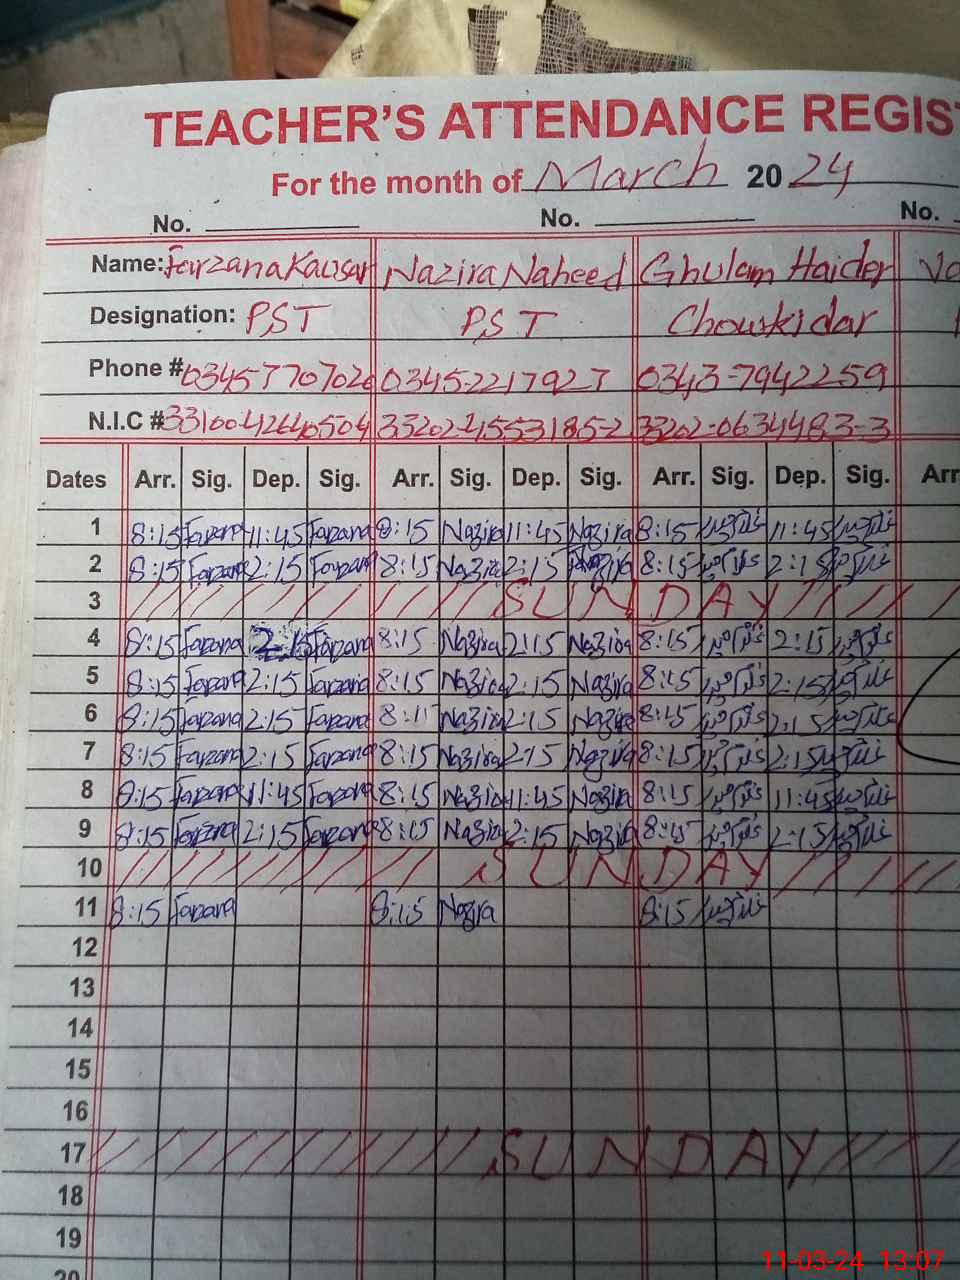 TEACHER'S ATTENDANCE REGIST
For the month of March 2024
No. No. No.
Name: Farzana Kausar Nazira Naheed Ghulam Haider
Designation: PST PST Chowkidar
Phone # 03457707020 0345-2217927 0343-7942259
N.I.C # 33202-4553185-2 33202-0634483-3
Dates Arr. Sig. Dep. Sig. Arr. Sig. Dep. Sig. Arr. Sig. Dep. Sig. Arr
1 8:15 Farzana 11:45 Farzana 8:15 Nazira 11:45 Nazira 8:15 11:45
2 8:15 Farzana 2:15 Farzana 8:15 Nazira 2:15 Nazira 8:15 2:15
3 SUNDAY
4 8:15 Farzana 2:15 Farzana 8:15 Nazira 2:15 Nazira 8:15 2:15
5 8:15 Farzana 2:15 Farzana 8:15 Nazira 2:15 Nazira 8:15 2:15
6 8:15 Farzana 2:15 Farzana 8:15 Nazira 2:15 Nazira 8:15 2:15
7 8:15 Farzana 2:15 Farzana 8:15 Nazira 2:15 Nazira 8:15 2:15
8 8:15 Farzana 11:45 Farzana 8:15 Nazira 11:45 Nazira 8:15 11:45
9 8:15 Farzana 2:15 Farzana 8:15 Nazira 2:15 Nazira 8:15 2:15
10 SUNDAY
11 8:15 Farzana 8:15 Nazira 8:15
12
13
14
15
16
17 SUNDAY
18
19
20
11-03-24 13:07